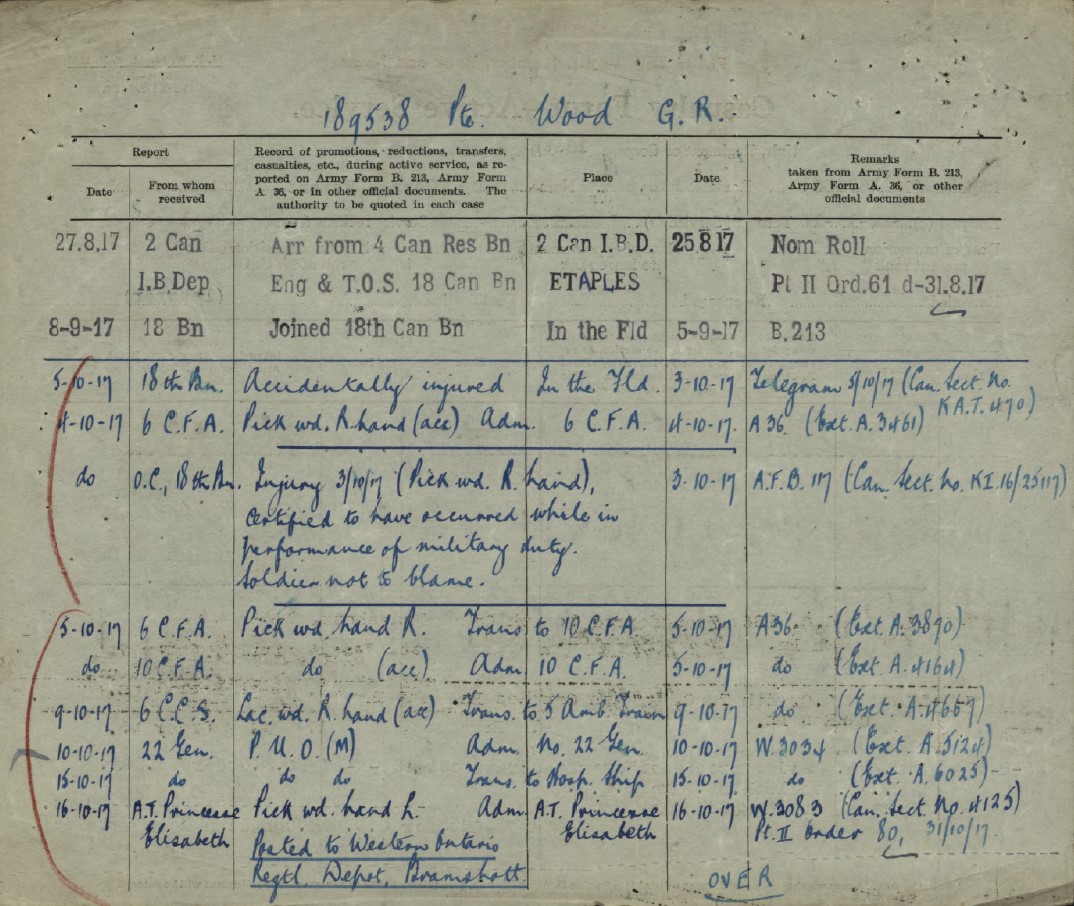 189538 Pte. Wood G. R.
Report
Date
From whom received
Record of promotions, reductions, transfers, casualties, etc., during active service, as reported on Army Form B. 213, Army Form A. 36, or in other official documents. The authority to be quoted in each case
Place
Date
Remarks taken from Army Form B. 213, Army Form A. 36, or other official documents
27.8.17 2 Can Arr from 4 Can Res Bn 2 Can I.B.D. 25 8 17 Nom Roll
I.B.Dep Eng & T.O.S. 18 Can Bn ETAPLES Pt II Ord.61 d-31.8.17
8-9-17 18 Bn Joined 18th Can Bn In the Fld 5-9-17 B.213
5-10-17 18th Bn. Accidentally injured In the Fld. 3-10-17 Telegram 5/10/17 (Can. Sect. No.
K A.T. 470)
4-10-17 6 C.F.A. Pick wd. R. hand (acc) Adm. 6 C.F.A. 4-10-17. A 36. (Ext. A. 3461)
do O.C., 18th Bn. Injury 3/10/17 (Pick wd. R. hand), 3-10-17 A.F.B. 117 (Can. Sect. No. KI.16/25117)
certified to have occurred while in
performance of military duty.
Soldier not to blame.
5-10-17 6 C.F.A. Pick wd. hand R. Trans to 10 C.F.A 5-10-17 A36 (Ext. A. 3890)
do 10 C.F.A. do (acc) Adm 10 C.F.A. 5-10-17 do (Ext A. 4164)
9-10-17 6 C.C.S. Lac. wd. R. hand (acc) Trans. to 5 Amb. Train 9-10-17 do (Ext. A. 4657)
10-10-17 22 Gen. P. U. O. (M) Adm. No. 22 Gen. 10-10-17 W.3034 (Ext. A. 5124)
15-10-17 do do do Trans. to Hosp. Ship 15-10-17 do (Ext. A. 6025)
16-10-17 A.T. Princesse Pick wd. hand L. Adm A.T. Princesse 16-10-17 W.3083 (Can. Sect No. 4125)
Elisabeth Posted to Western Ontario Elisabeth Pt. II Order 80, 31/10/17.
Regtl. Depot, Bramshott.
OVER